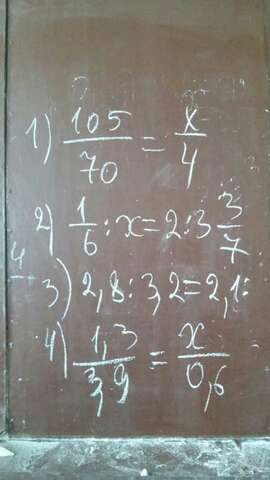 1) 105/70 = x/4
2) 1/6 : x = 2 : 3 3/7
3) 2,8 : 3,2 = 2,1 :
4) 1,3/3,9 = x/0,6